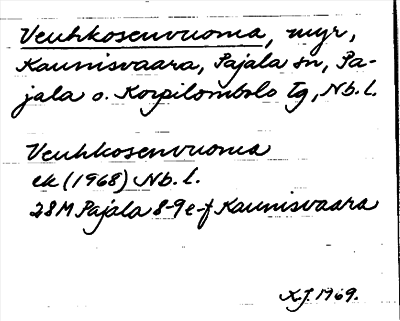 Veuhkosenvuoma, myr,
Kaunisvaara, Pajala sn, Pa-
jala o. Korpilombolo tg, Nb. l.
Veuhkosenvuoma
ek (1968) Nb. l.
28M Pajala 8-9 e-f Kaunisvaara
K.J. 1969.